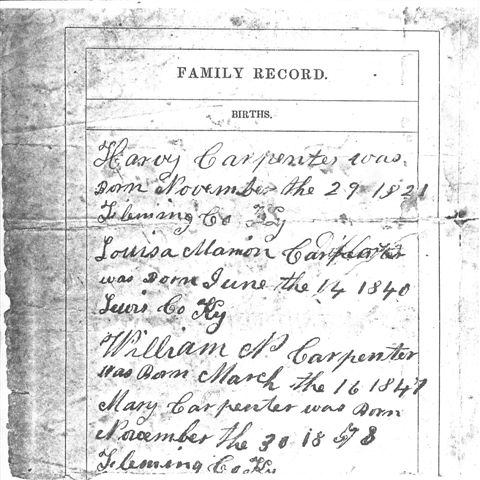 FAMILY RECORD.
BIRTHS.
Harvy Carpenter was
Born November the 29 1821
Fleming Co Ky
Louisa Marion Carpenter
was Born June the 14 1840
Lewis Co Ky
William N Carpenter
Was Born March the 16 1847
Mary Carpenter was Born
November the 30 18 8
Fleming Co Ky